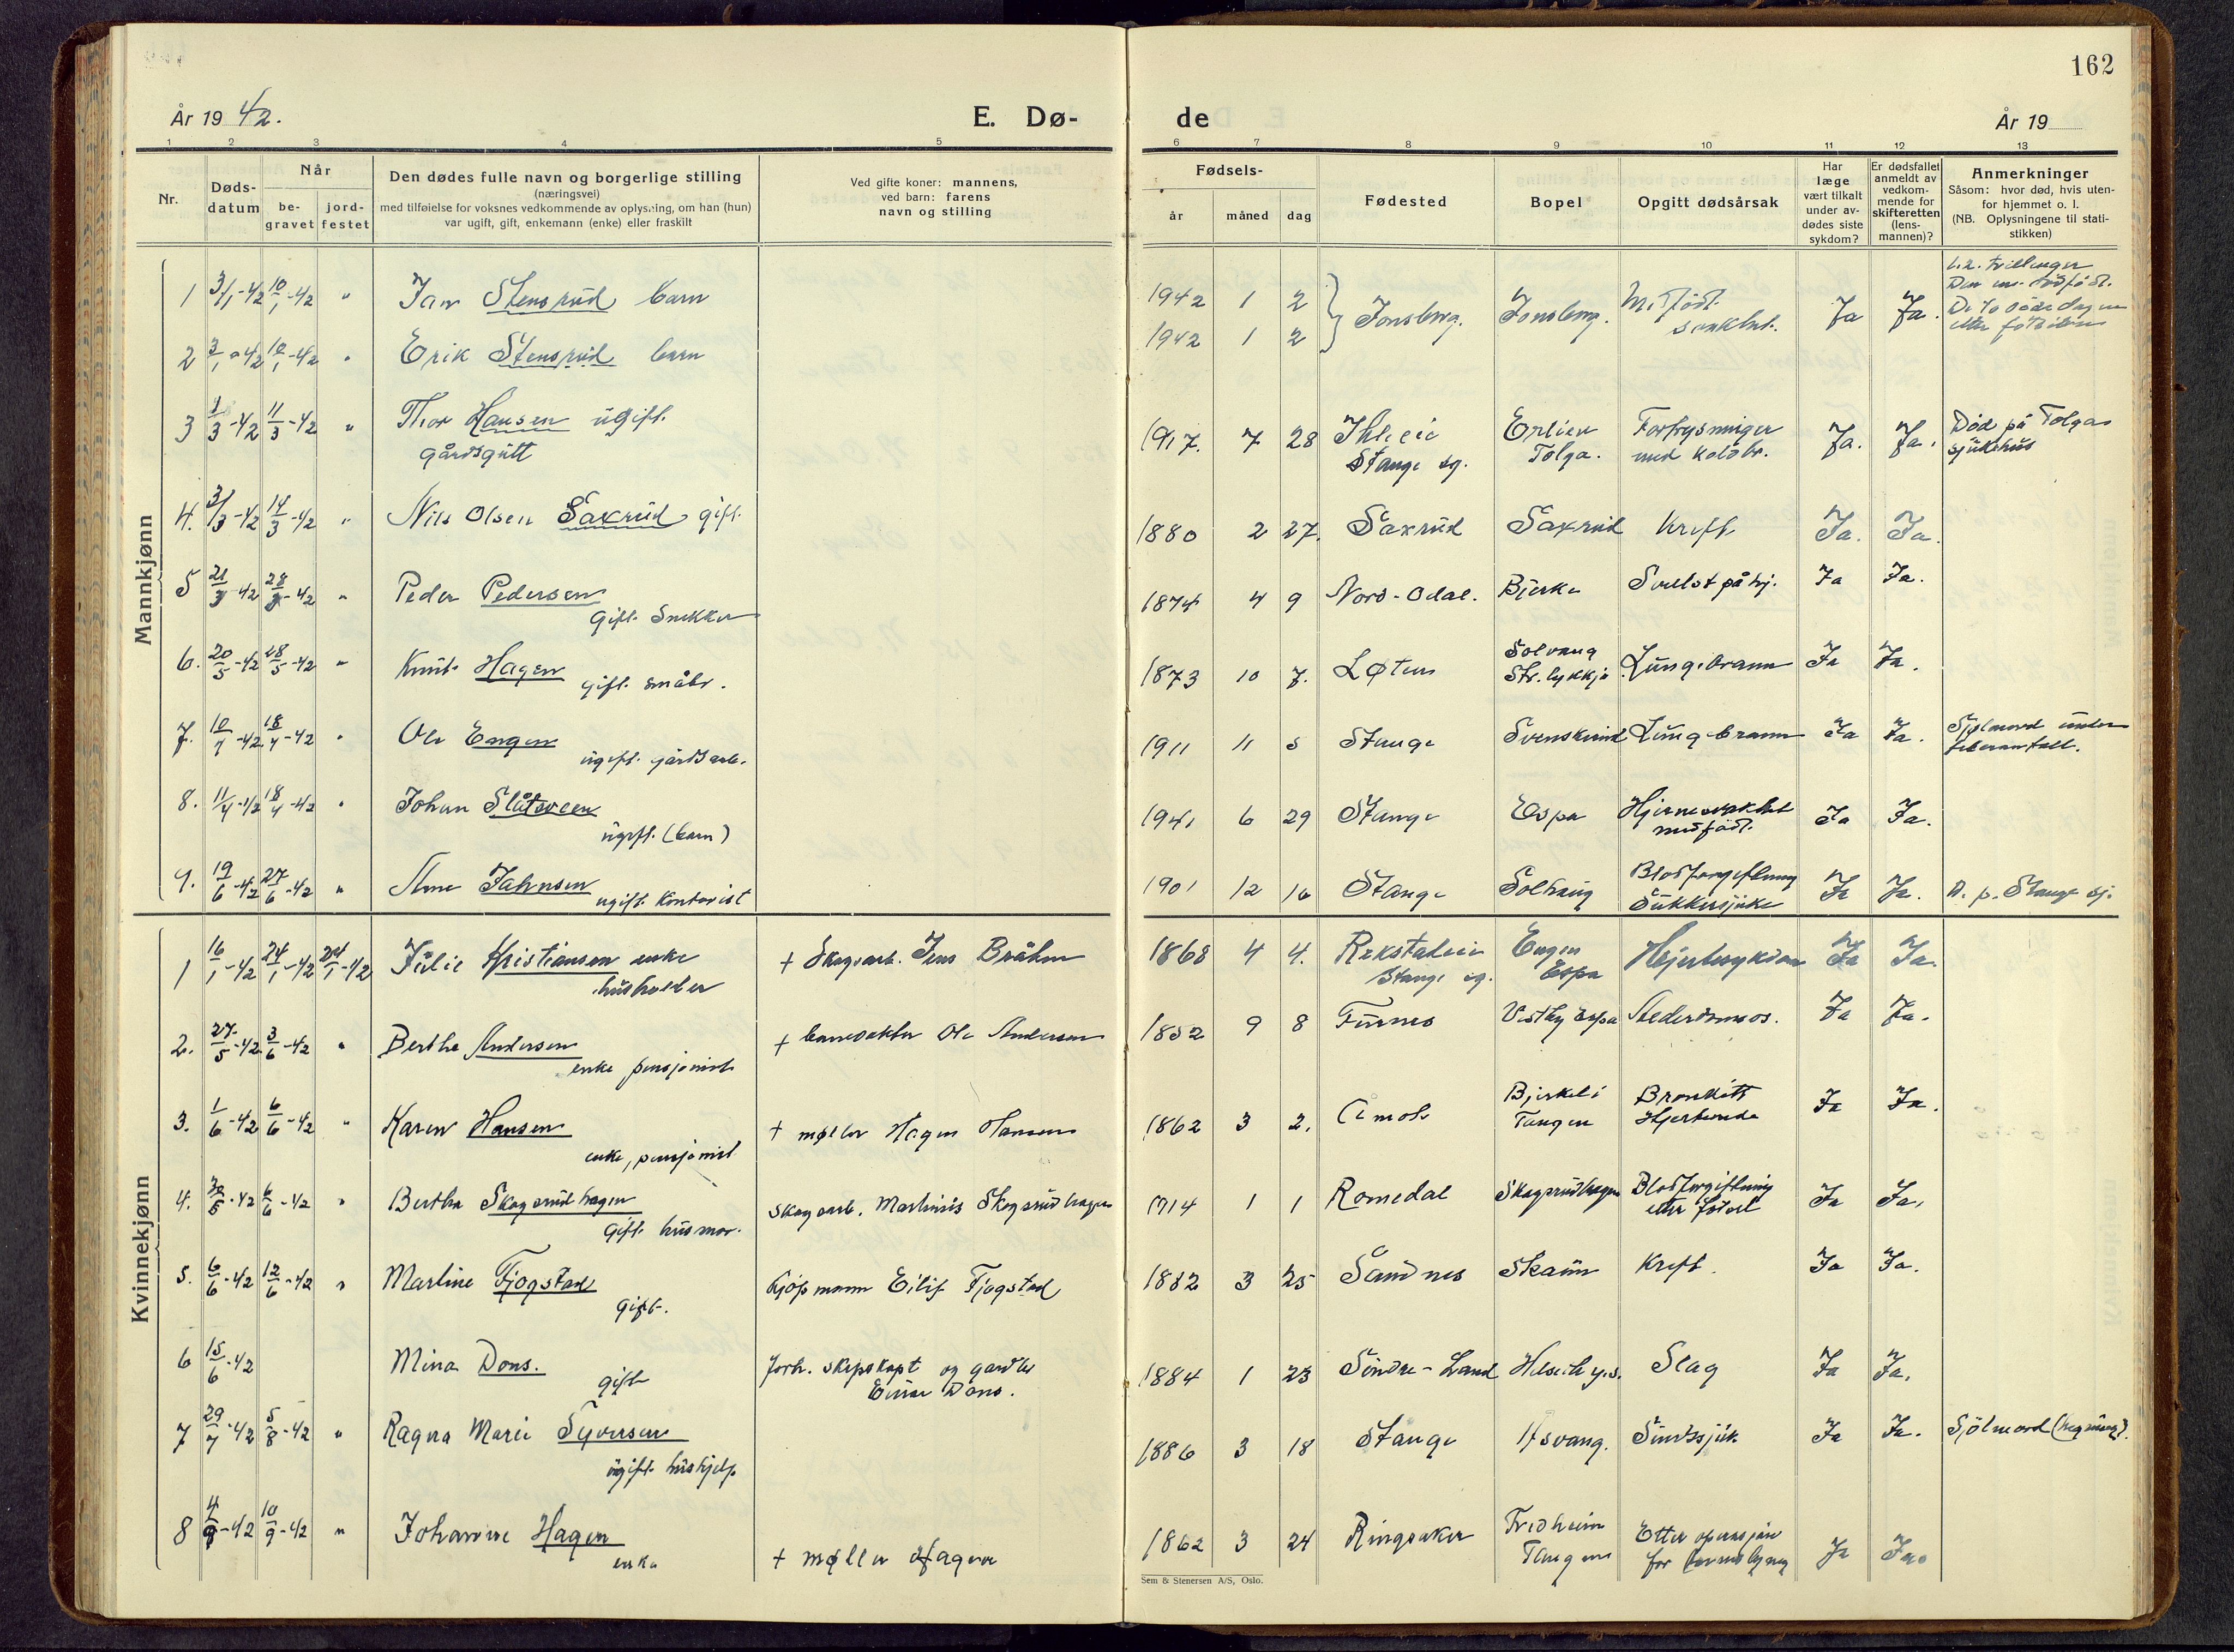 162
År 19 42.
E. Dø-
de
År 19
1 2 3 4 5 6 7 8 9 10 11 12 13
Nr.
Døds-
datum
Når
be-
gravet
jord-
festet
Den dødes fulle navn og borgerlige stilling
(næringsvei)
med tilføielse for voksnes vedkommende av oplysning, om han (hun)
var ugift, gift, enkemann (enke) eller fraskilt
Ved gifte koner: mannens,
ved barn: farens
navn og stilling
Fødsels-
år måned dag
Fødested
Bopel
Opgitt dødsårsak
Har
læge
vært tilkalt
under av-
dødes siste
sykdom?
Er dødsfallet
anmeldt av
vedkom-
mende for
skifteretten
(lens-
mannen)?
Anmerkninger
Såsom: hvor død, hvis uten-
for hjemmet o. l.
(NB. Oplysningene til stati-
stikken)
Mannkjønn
1 3/1-42 10/1-42 " Jan Stensrud barn 1942 1 2 Jonsberg. Jonsberg. Medfødt svakhet. Ja Ja.
1.2. tvillinger
2 3/1-42 10/1-42 " Erik Stensrud barn 1942 1 2
3 1/3-42 11/3-42 " Thor Hansen ugift. 1917. 7 28 Erlien Ja. Ja. Død på Tolga
gårdsgutt Stange sg. Tolga. med kolbr. sjukehus
4. 3/3-42 14/3-42 " Nils Olsen Saxrud gift. 1880 2 27. Saxrud Saxrud Kreft Ja. Ja.
5 21/3-42 28/3-42 " Peder Pedersen 1874 4 9 Nord-Odal. Bjerke Svulst på hj. Ja Ja.
gift. Snekker
6. 20/5-42 28/5-42 " Knut Hagen 1873 10 7. Løten Solvang Lungebrann Ja Ja.
gift. småbr. Str. lykkja
7. 10/4-42 18/4-42 " Ole Engen 1911 11 5 Stange Svenskerud Lungebrann Ja Ja. Sjølmord under
ugift. gårdsarb. feberanfall.
8. 11/4-42 18/4-42 " Johan Slåtsveen 1941 6 29 Stange Espa Hjernesvakhet Ja Ja.
ugift. (barn) medfødt.
9. 19/6-42 27/6-42 " Arne Jahnsen 1901 12 16 Stange Solhaug Blodforgiftning Ja Ja. D. p. Stange sj.
ugift. Kontorist Sukkersjuke
Kvinnekjønn
1 16/1-42 24/1-42 24/1-42 Julie Kristiansen enke + Skogsarb. Jens Bråten 1868 4 4. Engen Ja Ja.
husholder Stange sg. Espa
2. 27/5-42 3/6-42 " Berthe Andersen + banevokter Ole Andersen 1852 9 8 Furnes Vestby Espa Alderdomsos. Ja Ja.
enke pensjonist
3. 1/6-42 6/6-42 " Karen Hansen + møller Hagen Hansen 1862 3 2. Åmot Bjerkeli Bronkitt Ja Ja.
enke, pensjonist Tangen
4. 30/5-42 6/6-42 " Bertha Skogsrudhagen Skogsarb. Martinius Skogsrudhagen 1914 1 1 Romedal Skogsrudhagen Blodforgiftning Ja Ja.
gift. husmor. etter fødsel
5. 6/6-42 12/6-42 " Martine Fjogstad Kjøpmann Eilif Fjogstad 1882 3 25 Sandnes Skaun Kreft. Ja Ja.
gift.
6 15/6-42 Mina Dons. forh. skipskapt og gardbr 1884 1 23 Søndre-Land Slag Ja Ja.
gift Einar Dons.
7 29/7-42 5/8-42 " Ragna Marie Syversen 1886 3 18 Stange Åsvang. Sindssjuk Ja Ja. Sjølmord (hegning).
ugift. hushjelp
8 4/9-42 10/9-42 " Johanne Hagen + møller Hagen 1862 3 24 Ringsaker Fredheim Etter operasjon Ja Ja.
enke Tangen for
Sem & Stenersen A/S, Oslo.